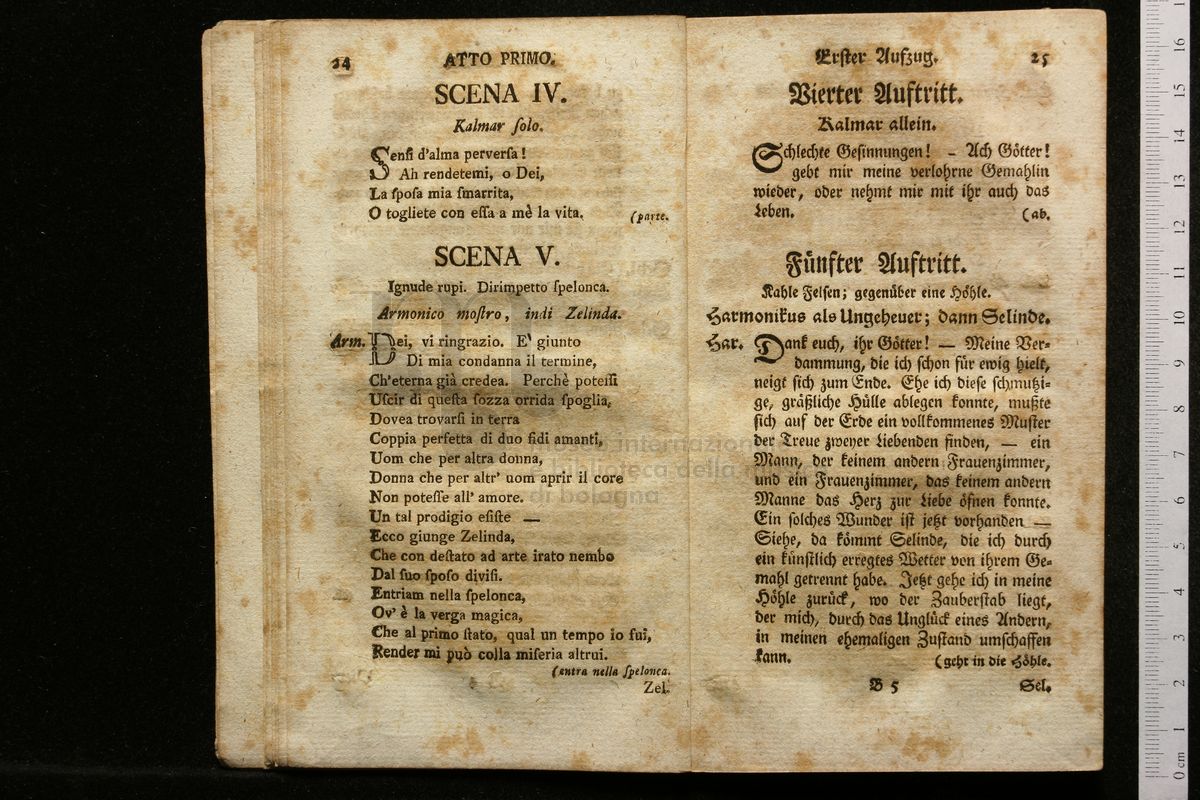 24 ATTO PRIMO.
SCENA IV.
Kalmar ſolo.
Senſi d'alma perverſa!
Ah rendetemi, o Dei,
La ſpoſa mia ſmarrita,
O togliete con eſſa a mè la vita. (parte.
SCENA V.
Ignude rupi. Dirimpetto ſpelonca.
Armonico moſtro, indi Zelinda.
Arm. Dei, vi ringrazio. E' giunto
Di mia condanna il termine,
Ch'eterna già credea. Perchè poteſſi
Uſcir di queſta ſozza orrida ſpoglia,
Dovea trovarſi in terra
Coppia perfetta di duo fidi amanti,
Uom che per altra donna,
Donna che per altr' uom aprir il core
Non poteſſe all' amore.
Un tal prodigio eſiſte —
Ecco giunge Zelinda,
Che con deſtato ad arte irato nembo
Dal ſuo ſpoſo diviſi.
Entriam nella ſpelonca,
Ov' è la verga magica,
Che al primo ſtato, qual un tempo io fui,
Render mi può colla miſeria altrui.
(entra nella ſpelonca.
Zel.
Erſter Aufzug. 25
Vierter Auftritt.
Kalmar allein.
Schlechte Geſinnungen! – Ach Götter!
gebt mir meine verlohrne Gemahlin
wieder, oder nehmt mir mit ihr auch das
Leben. (ab.
Fünfter Auftritt.
Kahle Felſen; gegenüber eine Höhle.
Harmonikus als Ungeheuer; dann Selinde.
Har. Dank euch, ihr Götter! — Meine Ver-
dammung, die ich ſchon für ewig hielt,
neigt ſich zum Ende. Ehe ich dieſe ſchmutzi-
ge, gräßliche Hülle ablegen konnte, mußte
ſich auf der Erde ein vollkommenes Muſter
der Treue zweyer Liebenden finden, — ein
Mann, der keinem andern Frauenzimmer,
und ein Frauenzimmer, das keinem andern
Manne das Herz zur Liebe öfnen konnte.
Ein ſolches Wunder iſt jetzt vorhanden —
Siehe, da kömmt Selinde, die ich durch
ein künſtlich erregtes Wetter von ihrem Ge-
mahl getrennt habe. Jetzt gehe ich in meine
Höhle zurück, wo der Zauberſtab liegt,
der mich, durch das Unglück eines Andern,
in meinen ehemaligen Zuſtand umſchaffen
kann. (geht in die Höhle.
B 5 Sel.
museo internazionale
e biblioteca della
di bologna
0 cm 1 2 3 4 5 6 7 8 9 10 11 12 13 14 15 16